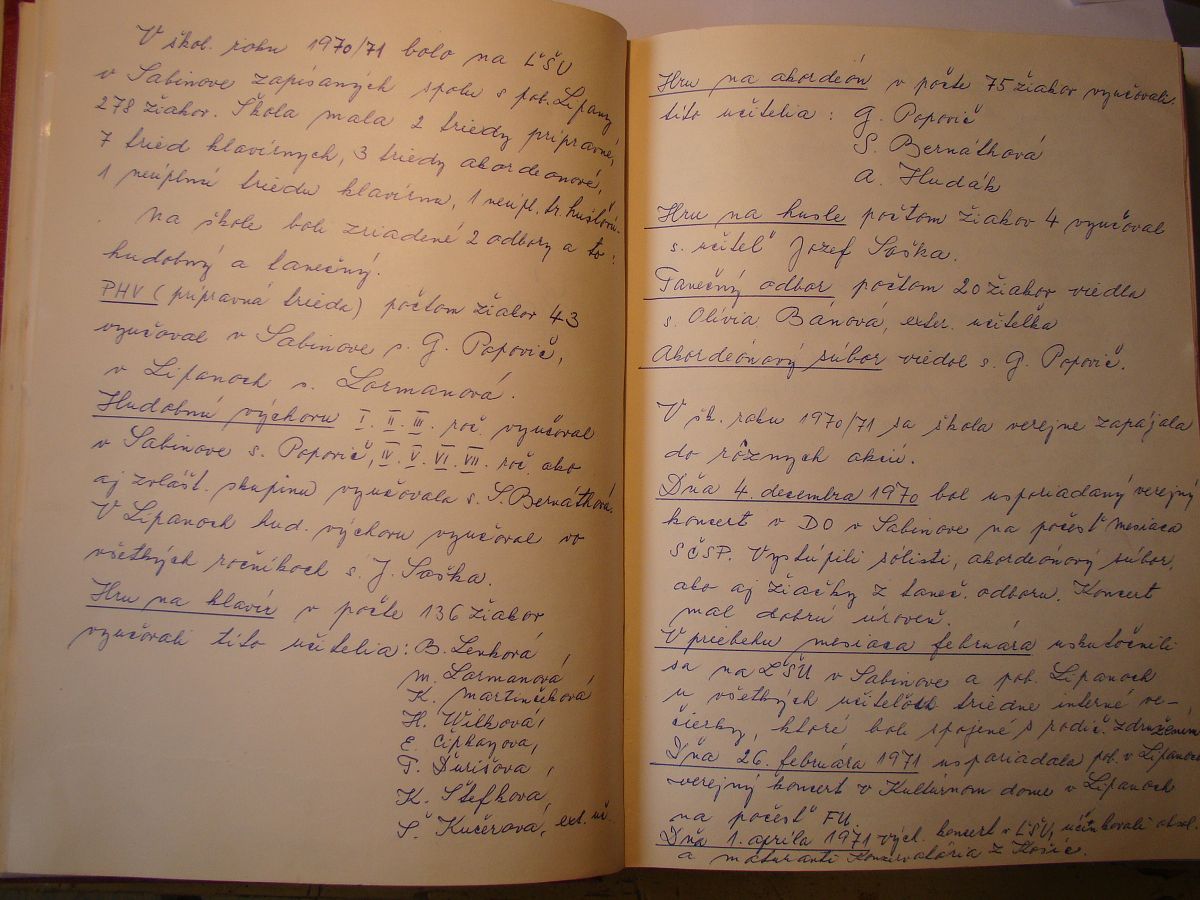 V škol. roku 1970/71 bolo na ĽŠU
v Sabinove zapísaných spolu s pob. Lipany
278 žiakov. Škola mala 2 triedy prípravné,
7 tried klavírnych, 3 triedy akordeónové,
1 neúplnú triedu klavírnu, 1 neúpl. tr. huslovú.
Na škole boli zriadené 2 odbory a to:
hudobný a tanečný.
PHV (prípravná trieda) počtom žiakov 43
vyučoval v Sabinove s. G. Popovič,
v Lipanoch s. Lormanová.
Hudobnú výchovu I. II. III. roč. vyučoval
v Sabinove s. Popovič, IV. V. VI. VII. roč. ako
aj zvlášt. skupinu vyučovala s. S. Bernáthová.
V Lipanoch hud. výchovu vyučoval vo
všetkých ročníkoch s. J. Saška.
Hru na klavír v počte 136 žiakov
vyučovali títo učitelia: B. Lenková,
M. Lormanová,
K. Martinčeková
H. Wilková,
E. Cipkayova,
T. Ďurišova,
K. Štefkova,
Š. Kučerová, ext. uč.
Hru na akordeón v počte 75 žiakov vyučovali
títo učitelia: G. Popovič
S. Bernáthová
A. Hudák
Hru na husle počtom žiakov 4 vyučoval
s. učiteľ Jozef Saška.
Tanečný odbor počtom 20 žiakov viedla
s. Olívia Bánová, exter. učiteľka
Akordeónový súbor viedol s. G. Popovič.
V šk. roku 1970/71 sa škola verejne zapájala
do rôznych akcií.
Dňa 4. decembra 1970 bol usporiadaný verejný
koncert v DO v Sabinove na počesť mesiaca
SČSP. Vystúpili sólisti, akordeónový súbor,
ako aj žiačky z taneč. odboru. Koncert
mal dobrú úroveň.
V priebehu mesiaca februára uskutočnili
sa na ĽŠU v Sabinove a pob. Lipanoch
u všetkých učiteľov triedne interné ve-
čierky, ktoré boli spojené s rodič. združením
Dňa 26. februára 1971 usporiadala pob. v Lipanoch
verejný koncert v Kultúrnom dome v Lipanoch
na počesť FV.
Dňa 1. apríla 1971 vých. koncert v ĽŠU, účinkovali absol.
a maturanti Konzervatória z Košíc.